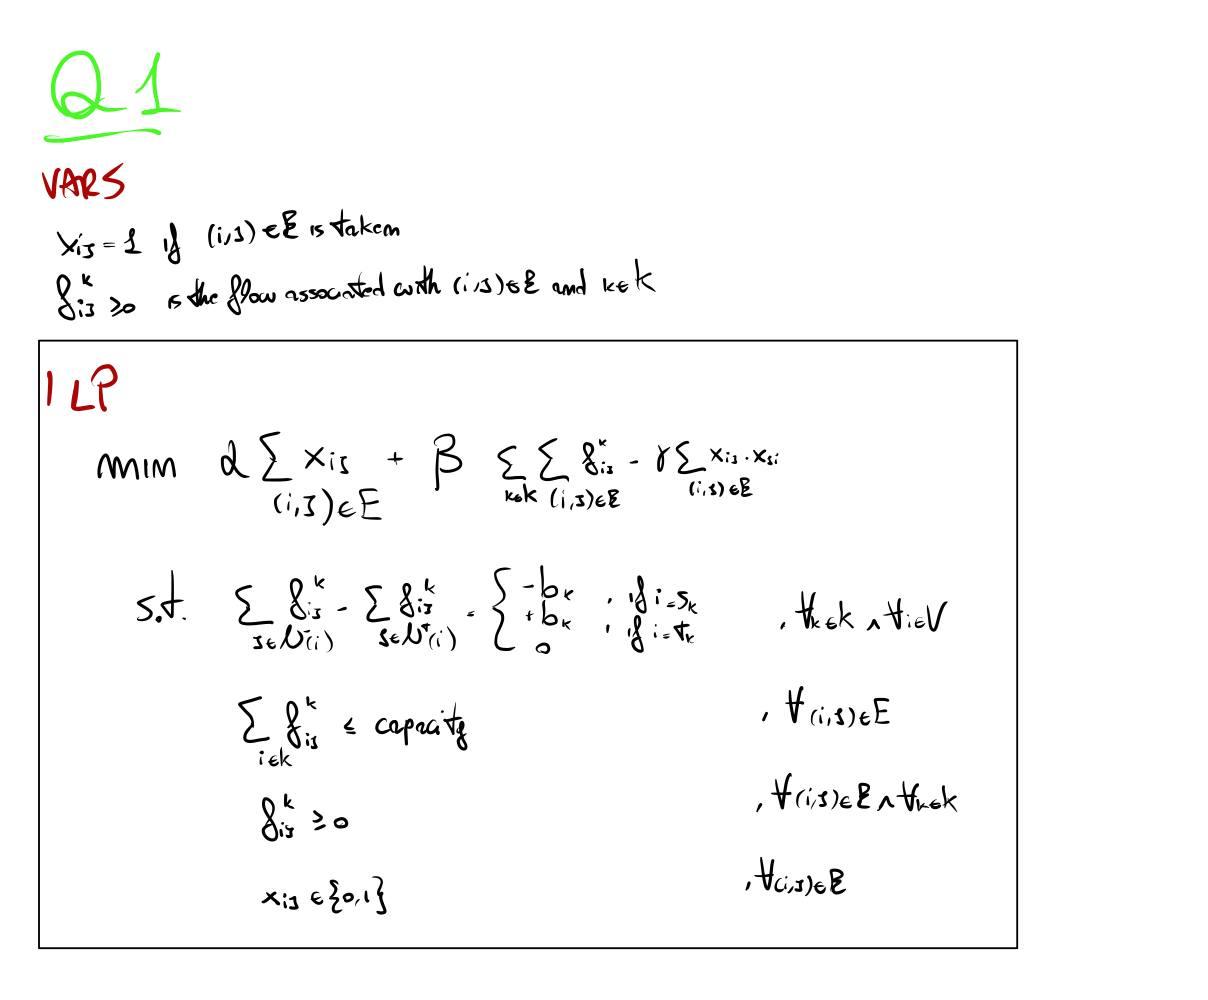 Q1
VARS
x_ij = 1 if (i,j) ∈ E is taken
f_ij^k ≥ 0 is the flow associated with (i,j) ∈ E and k ∈ K
ILP
min α ∑_{(i,j)∈E} x_ij + β ∑_{k∈K} ∑_{(i,j)∈E} f_ij^k - γ ∑_{(i,j)∈E} x_ij · x_ji
s.t. ∑_{j∈N^-(i)} f_ij^k - ∑_{j∈N^+(i)} f_ij^k = { -b_k , if i = s_k ; +b_k , if i = t_k ; 0 , ∀k∈K ∧ ∀i∈V
∑_{i∈K} f_ij^k ≤ capacity , ∀(i,j)∈E
f_ij^k ≥ 0 , ∀(i,j)∈E ∧ ∀k∈K
x_ij ∈ {0,1} , ∀(i,j)∈E